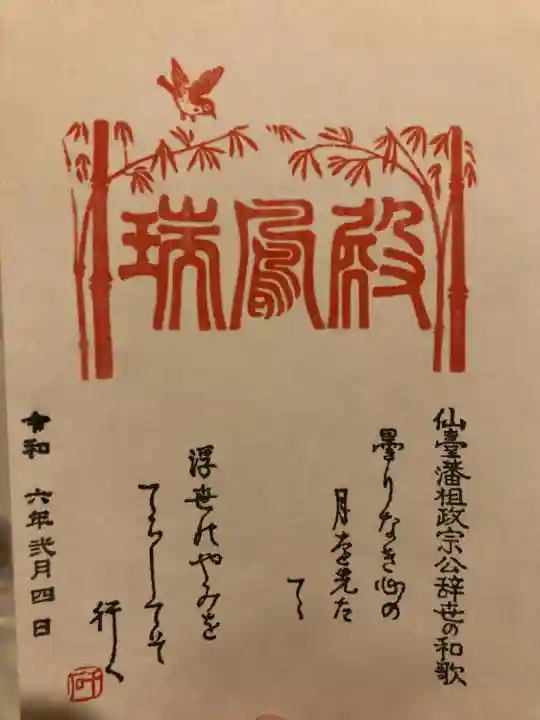 瑞鳳殿
仙臺藩祖政宗公辞世の和歌
曇りなき心の
月を先だ
て
浮世のやみを
てらしてぞ
行く
令和 六年 弐月四日